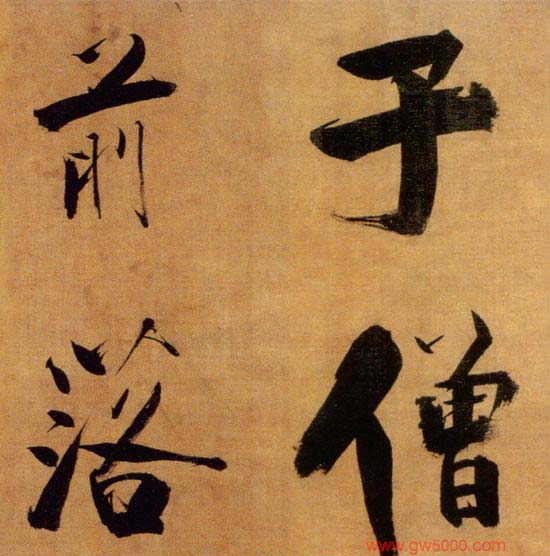 子僧
前落
www.gw5000.com